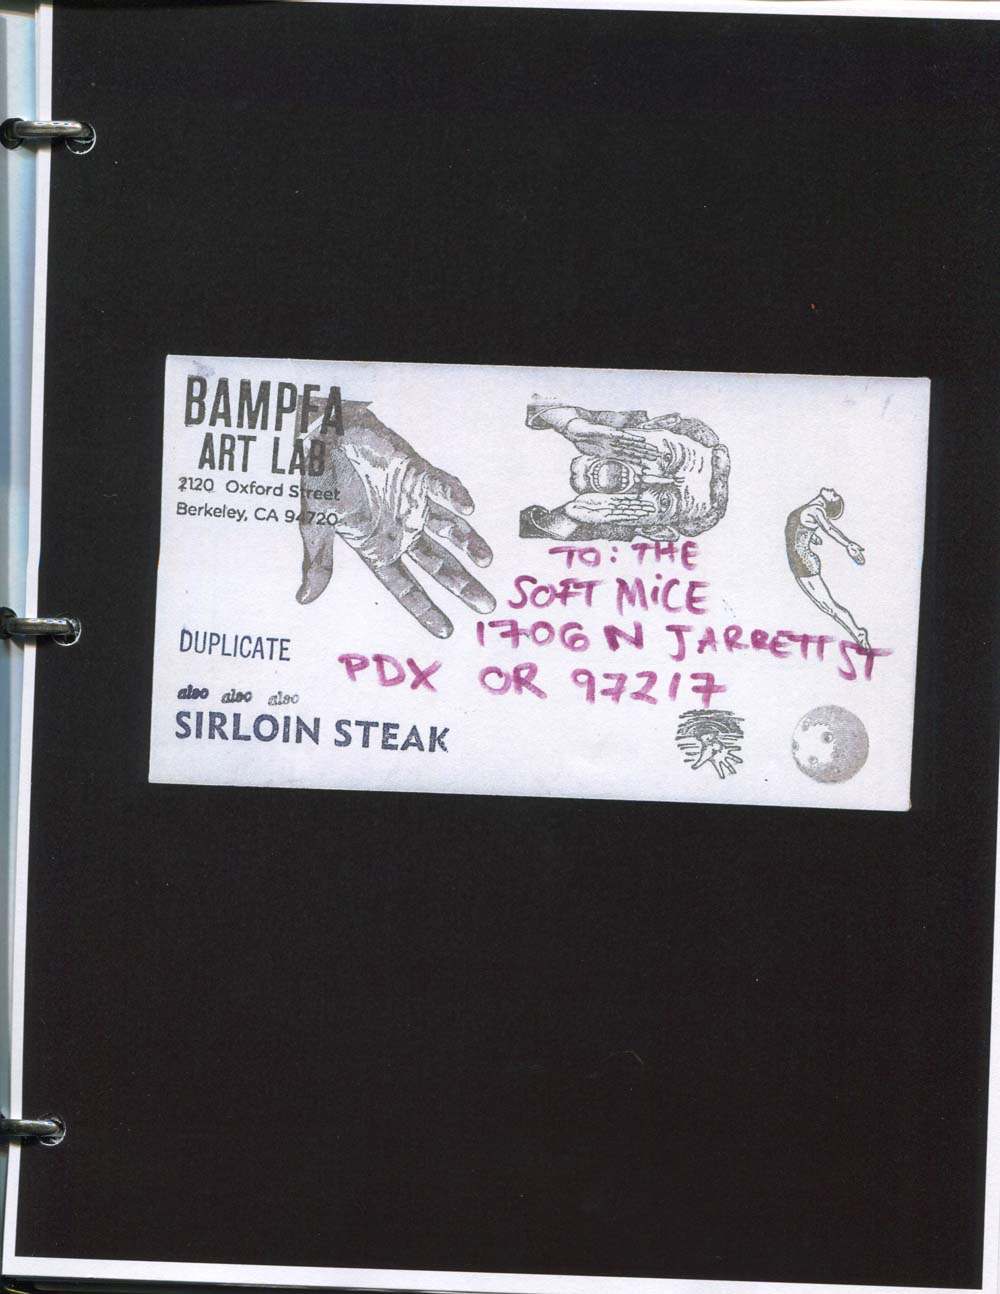 BAMPFA
ART LAB
2120 Oxford Street
Berkeley, CA 94720
TO: THE
SOFT MiCE
1706 N JARRETT ST
PDX OR 97217
DUPLICATE
also also also
SIRLOIN STEAK